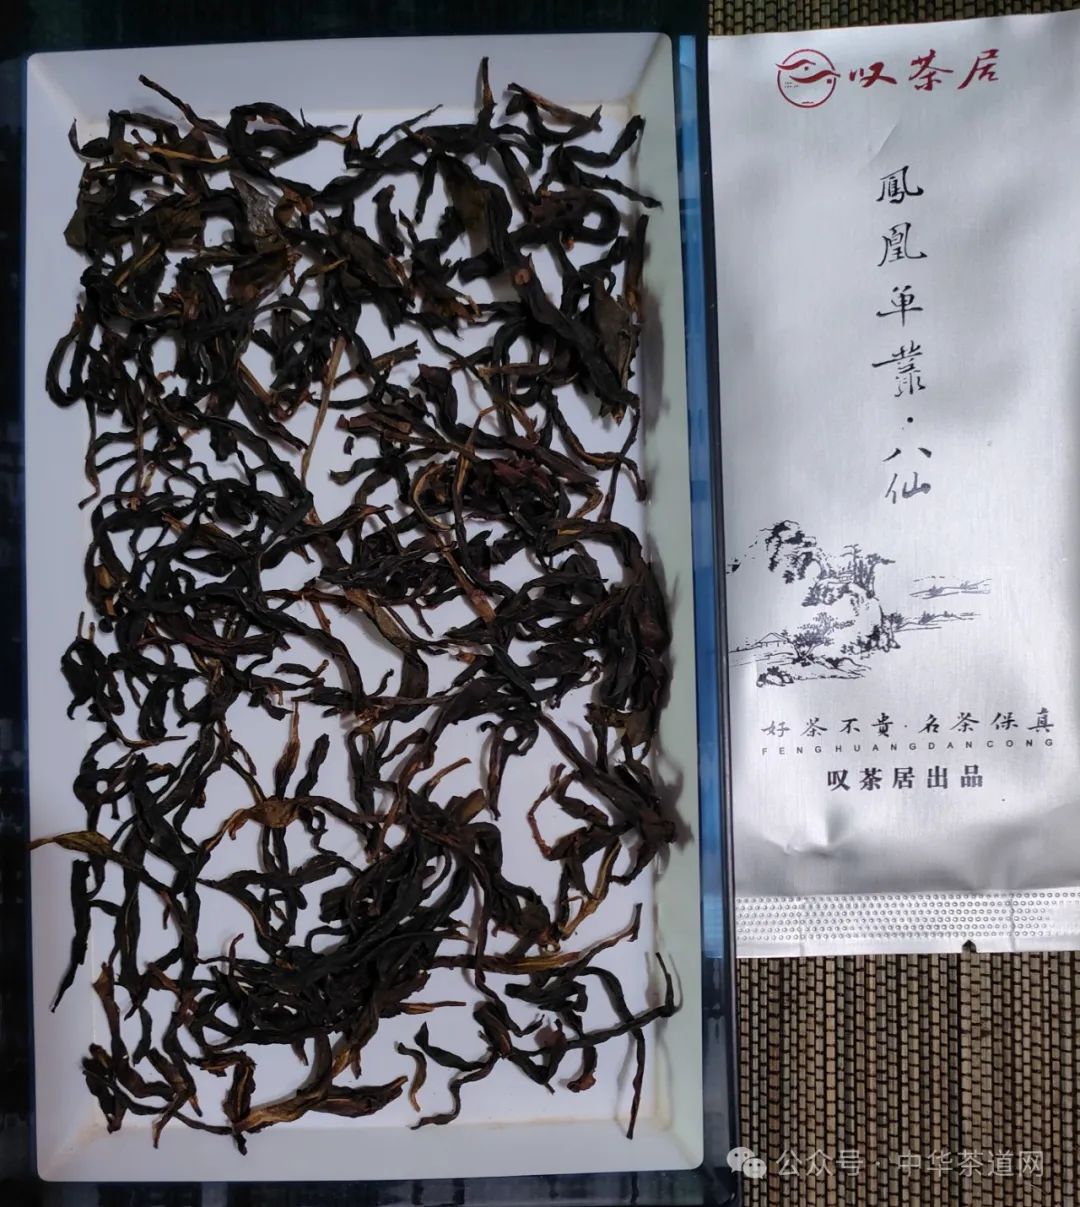 叹茶居
鳳凰单叢·八仙
好茶不贵·名茶保真
FENGHUANGDANCONG
叹茶居出品
公众号·中华茶道网